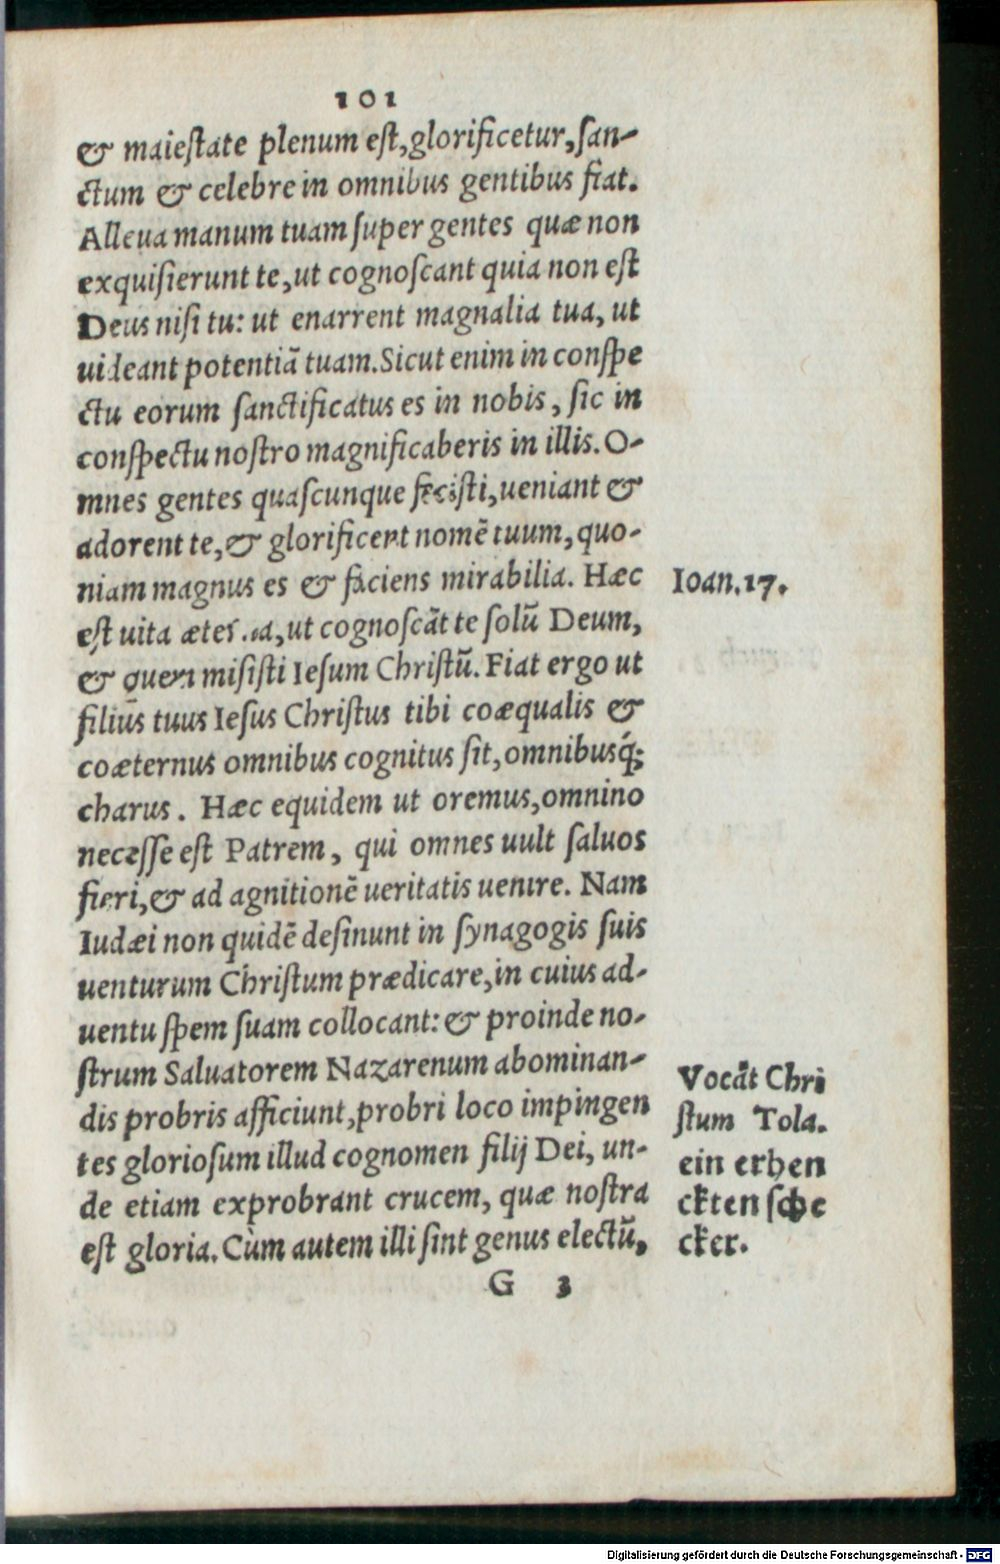 101
& maiestate plenum est, glorificetur, san-
ctum & celebre in omnibus gentibus fiat.
Alleua manum tuam super gentes quæ non
exquisierunt te, ut cognoscant quia non est
Deus nisi tu: ut enarrent magnalia tua, ut
uideant potentiã tuam. Sicut enim in conspe
ctu eorum sanctificatus es in nobis, sic in
conspectu nostro magnificaberis in illis. O-
mnes gentes quascunque fecisti, ueniant &
adorent te, & glorificent nomẽ tuum, quo-
niam magnus es & faciens mirabilia. Hæc
est uita æterna, ut cognoscãt te solũ Deum,
& quem misisti Iesum Christũ. Fiat ergo ut
filius tuus Iesus Christus tibi coæqualis &
coæternus omnibus cognitus sit, omnibusq́;
charus. Hæc equidem ut oremus, omnino
necesse est Patrem, qui omnes uult saluos
fieri, & ad agnitionẽ ueritatis uenire. Nam
Iudæi non quidẽ desinunt in synagogis suis
uenturum Christum prædicare, in cuius ad-
uentu spem suam collocant: & proinde no-
strum Saluatorem Nazarenum abominan-
dis probris afficiunt, probri loco impingen
tes gloriosum illud cognomen filij Dei, un-
de etiam exprobrant crucem, quæ nostra
est gloria. Cùm autem illi sint genus electũ,
G 3
Ioan. 17.
Vocãt Chri
stum Tola.
ein erhen
ckten sche
cker.
Digitalisierung gefördert durch die Deutsche Forschungsgemeinschaft - DFG